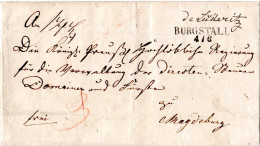 An
de Lüderitz
BURGSTALL
4/6
Die Königl. Preuß. Hochlöbliche Regierung
für die Verwaltung der directen Steuern
Domainen und Forsten
zu
Magdeburg
frei